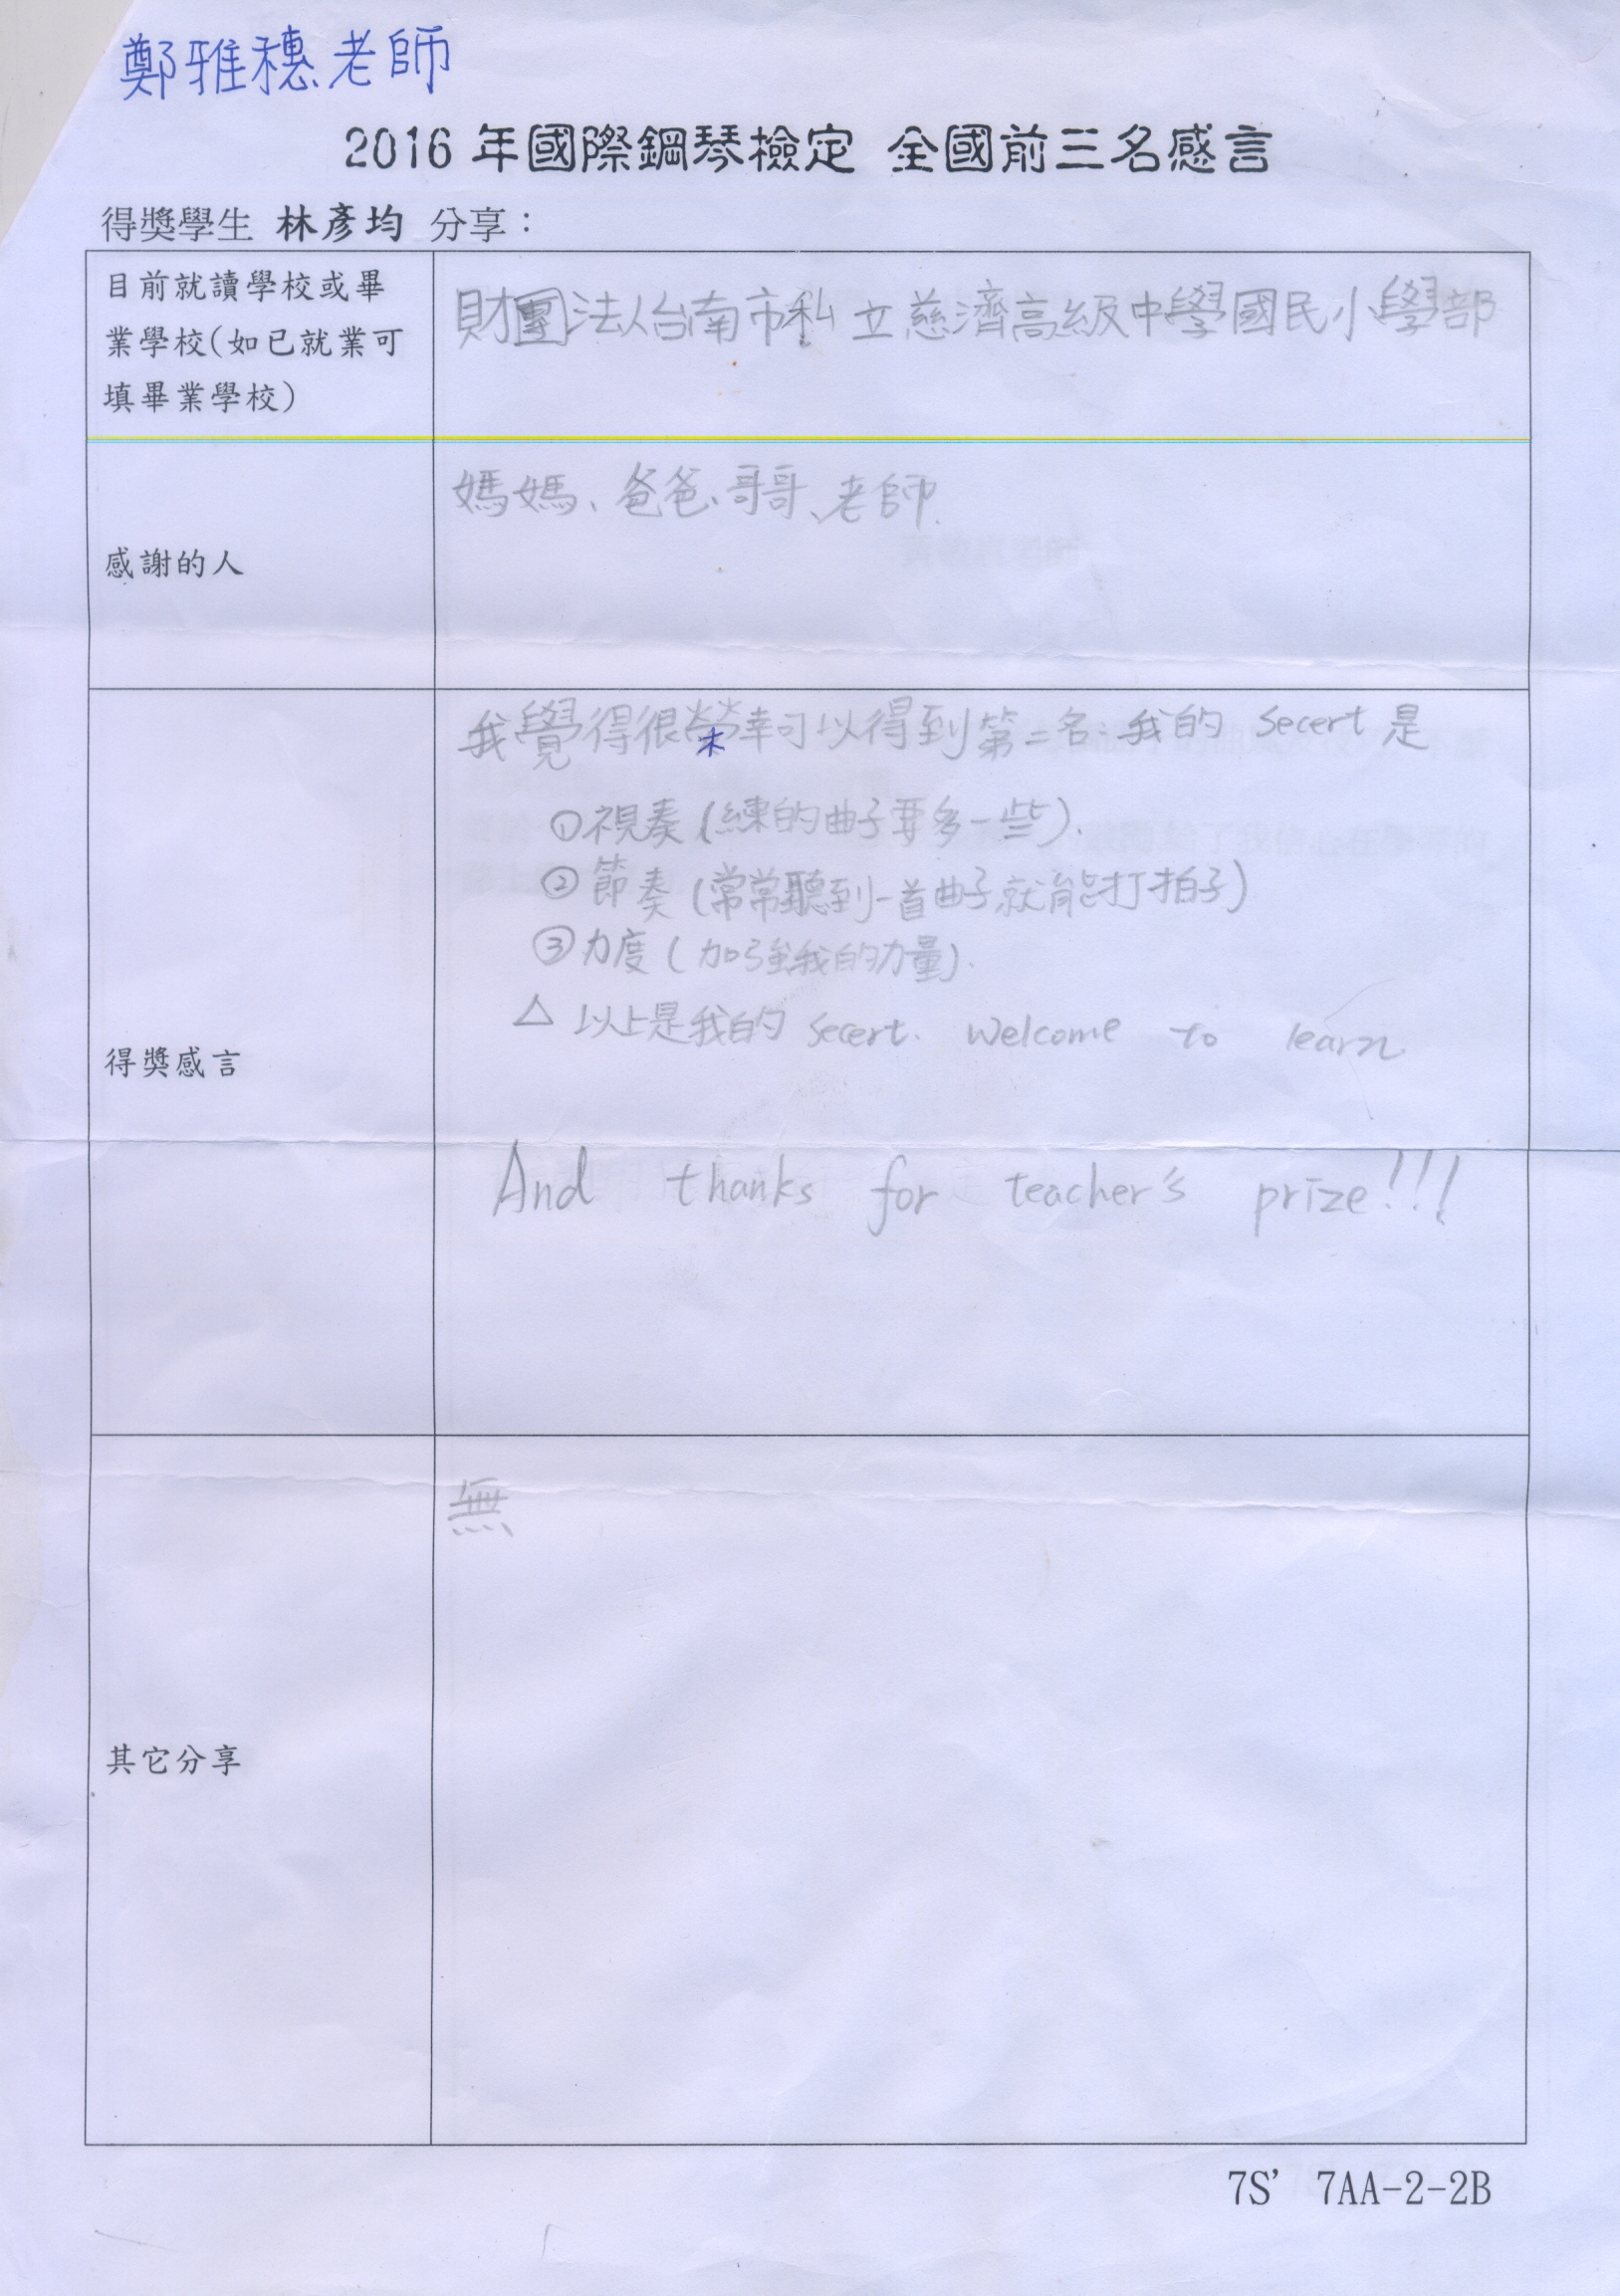 鄭雅穗老師
2016 年國際鋼琴檢定 全國前三名感言
得獎學生 林彥均 分享：
目前就讀學校或畢
業學校(如已就業可
填畢業學校)
財團法人台南市私立慈濟高級中學國民小學部
感謝的人
媽媽、爸爸、哥哥、老師.
得獎感言
我覺得很榮幸可以得到第二名：我的 secert 是
①視奏(練的曲子要多一些).
②節奏(常常聽到一首曲子就能打拍子)
③力度(加強我的力量).
△ 以上是我的 secert. Welcome to learn
And thanks for teacher's prize!!!
其它分享
無
7S' 7AA-2-2B